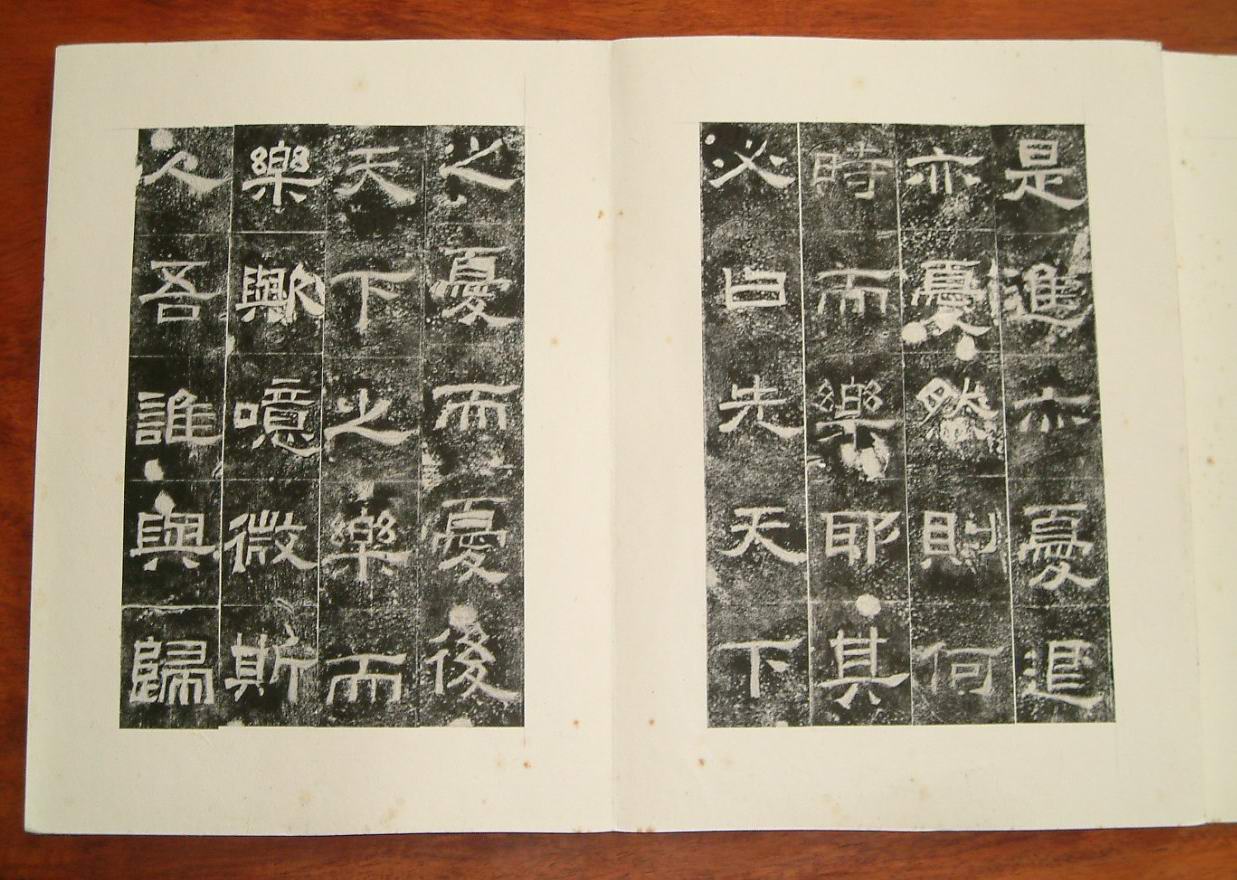 是進亦憂退
亦憂然則何
時而樂耶其
必曰先天下
之憂而憂後
天下之樂而
樂歟噫微斯
人吾誰與歸